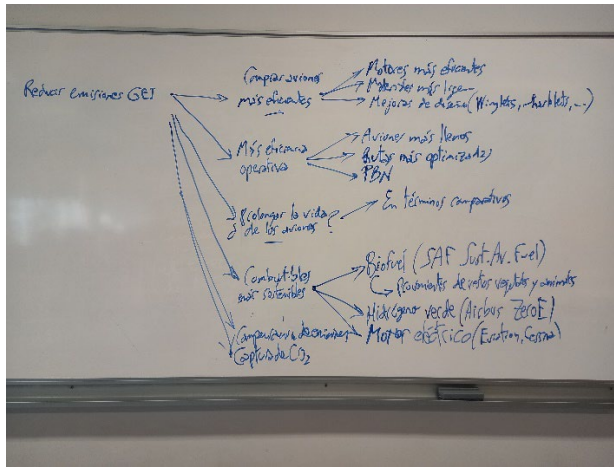 Reducir emisiones GEI
Comprar aviones
más eficientes
Motores más eficientes
Materiales más
Mejoras de diseño (Winglets, sharklets, ...)
Más eficiencia
operativa
Aviones más llenos
Rutas más optimizadas
PBN
¿Prolongar la vida
de los aviones?
En términos comparativos
Combustibles
más sostenibles
Biofuel (SAF Sust. Av. Fuel)
Provenientes de restos vegetales y animales
Hidrógeno verde (Airbus ZeroE)
Motor eléctrico (Eviation, Cessna)
Compensación de emisiones
Captura de CO2